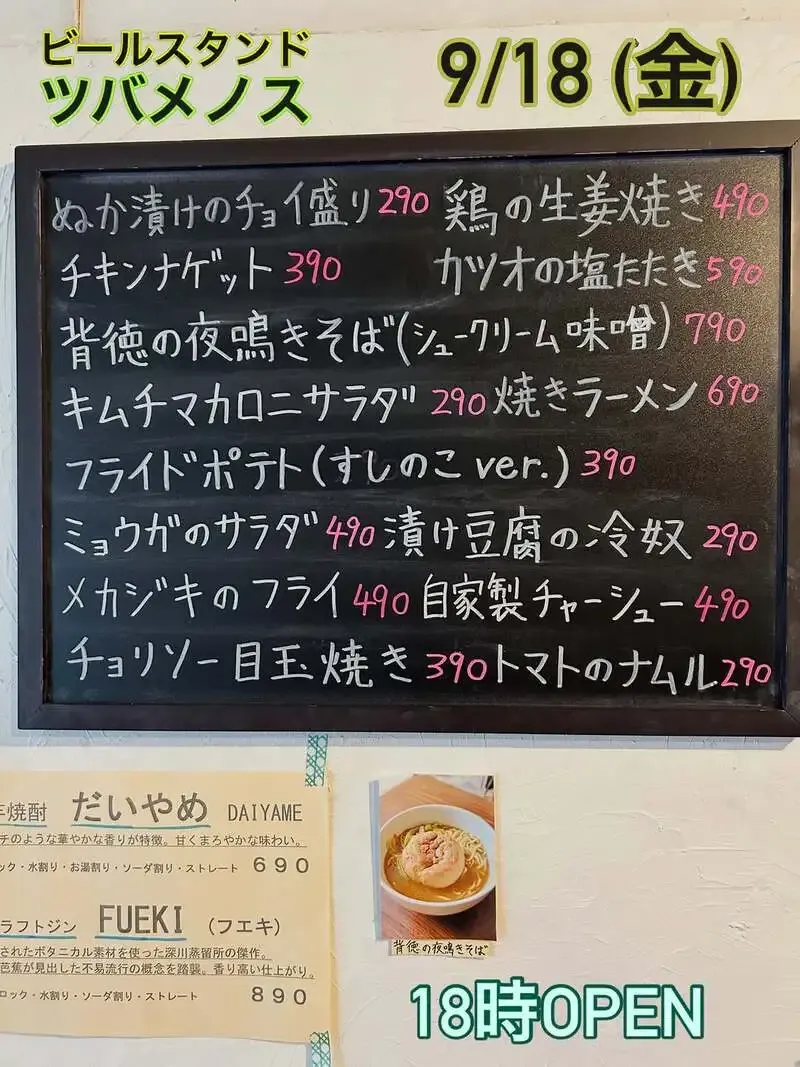 ビールスタンド
ツバメノス
9/18 (金)
ぬか漬けのチョイ盛り 290 鶏の生姜焼き 490
チキンナゲット 390 カツオの塩たたき 590
背徳の夜鳴きそば(シュークリーム味噌) 790
キムチマカロニサラダ 290 焼きラーメン 690
フライドポテト(すしのこ ver.) 390
ミョウガのサラダ 490 漬け豆腐の冷奴 290
メカジキのフライ 490 自家製チャーシュー 490
チョリソー目玉焼き 390 トマトのナムル 290
焼酎 だいやめ DAIYAME
チのような華やかな香りが特徴。甘くまろやかな味わい。
ック・水割り・お湯割り・ソーダ割り・ストレート 690
ラフトジン FUEKI (フエキ)
されたボタニカル素材を使った深川蒸留所の傑作。
芭蕉が見出した不易流行の概念を踏襲。香り高い仕上がり。
ロック・水割り・ソーダ割り・ストレート 890
背徳の夜鳴きそば
18時OPEN